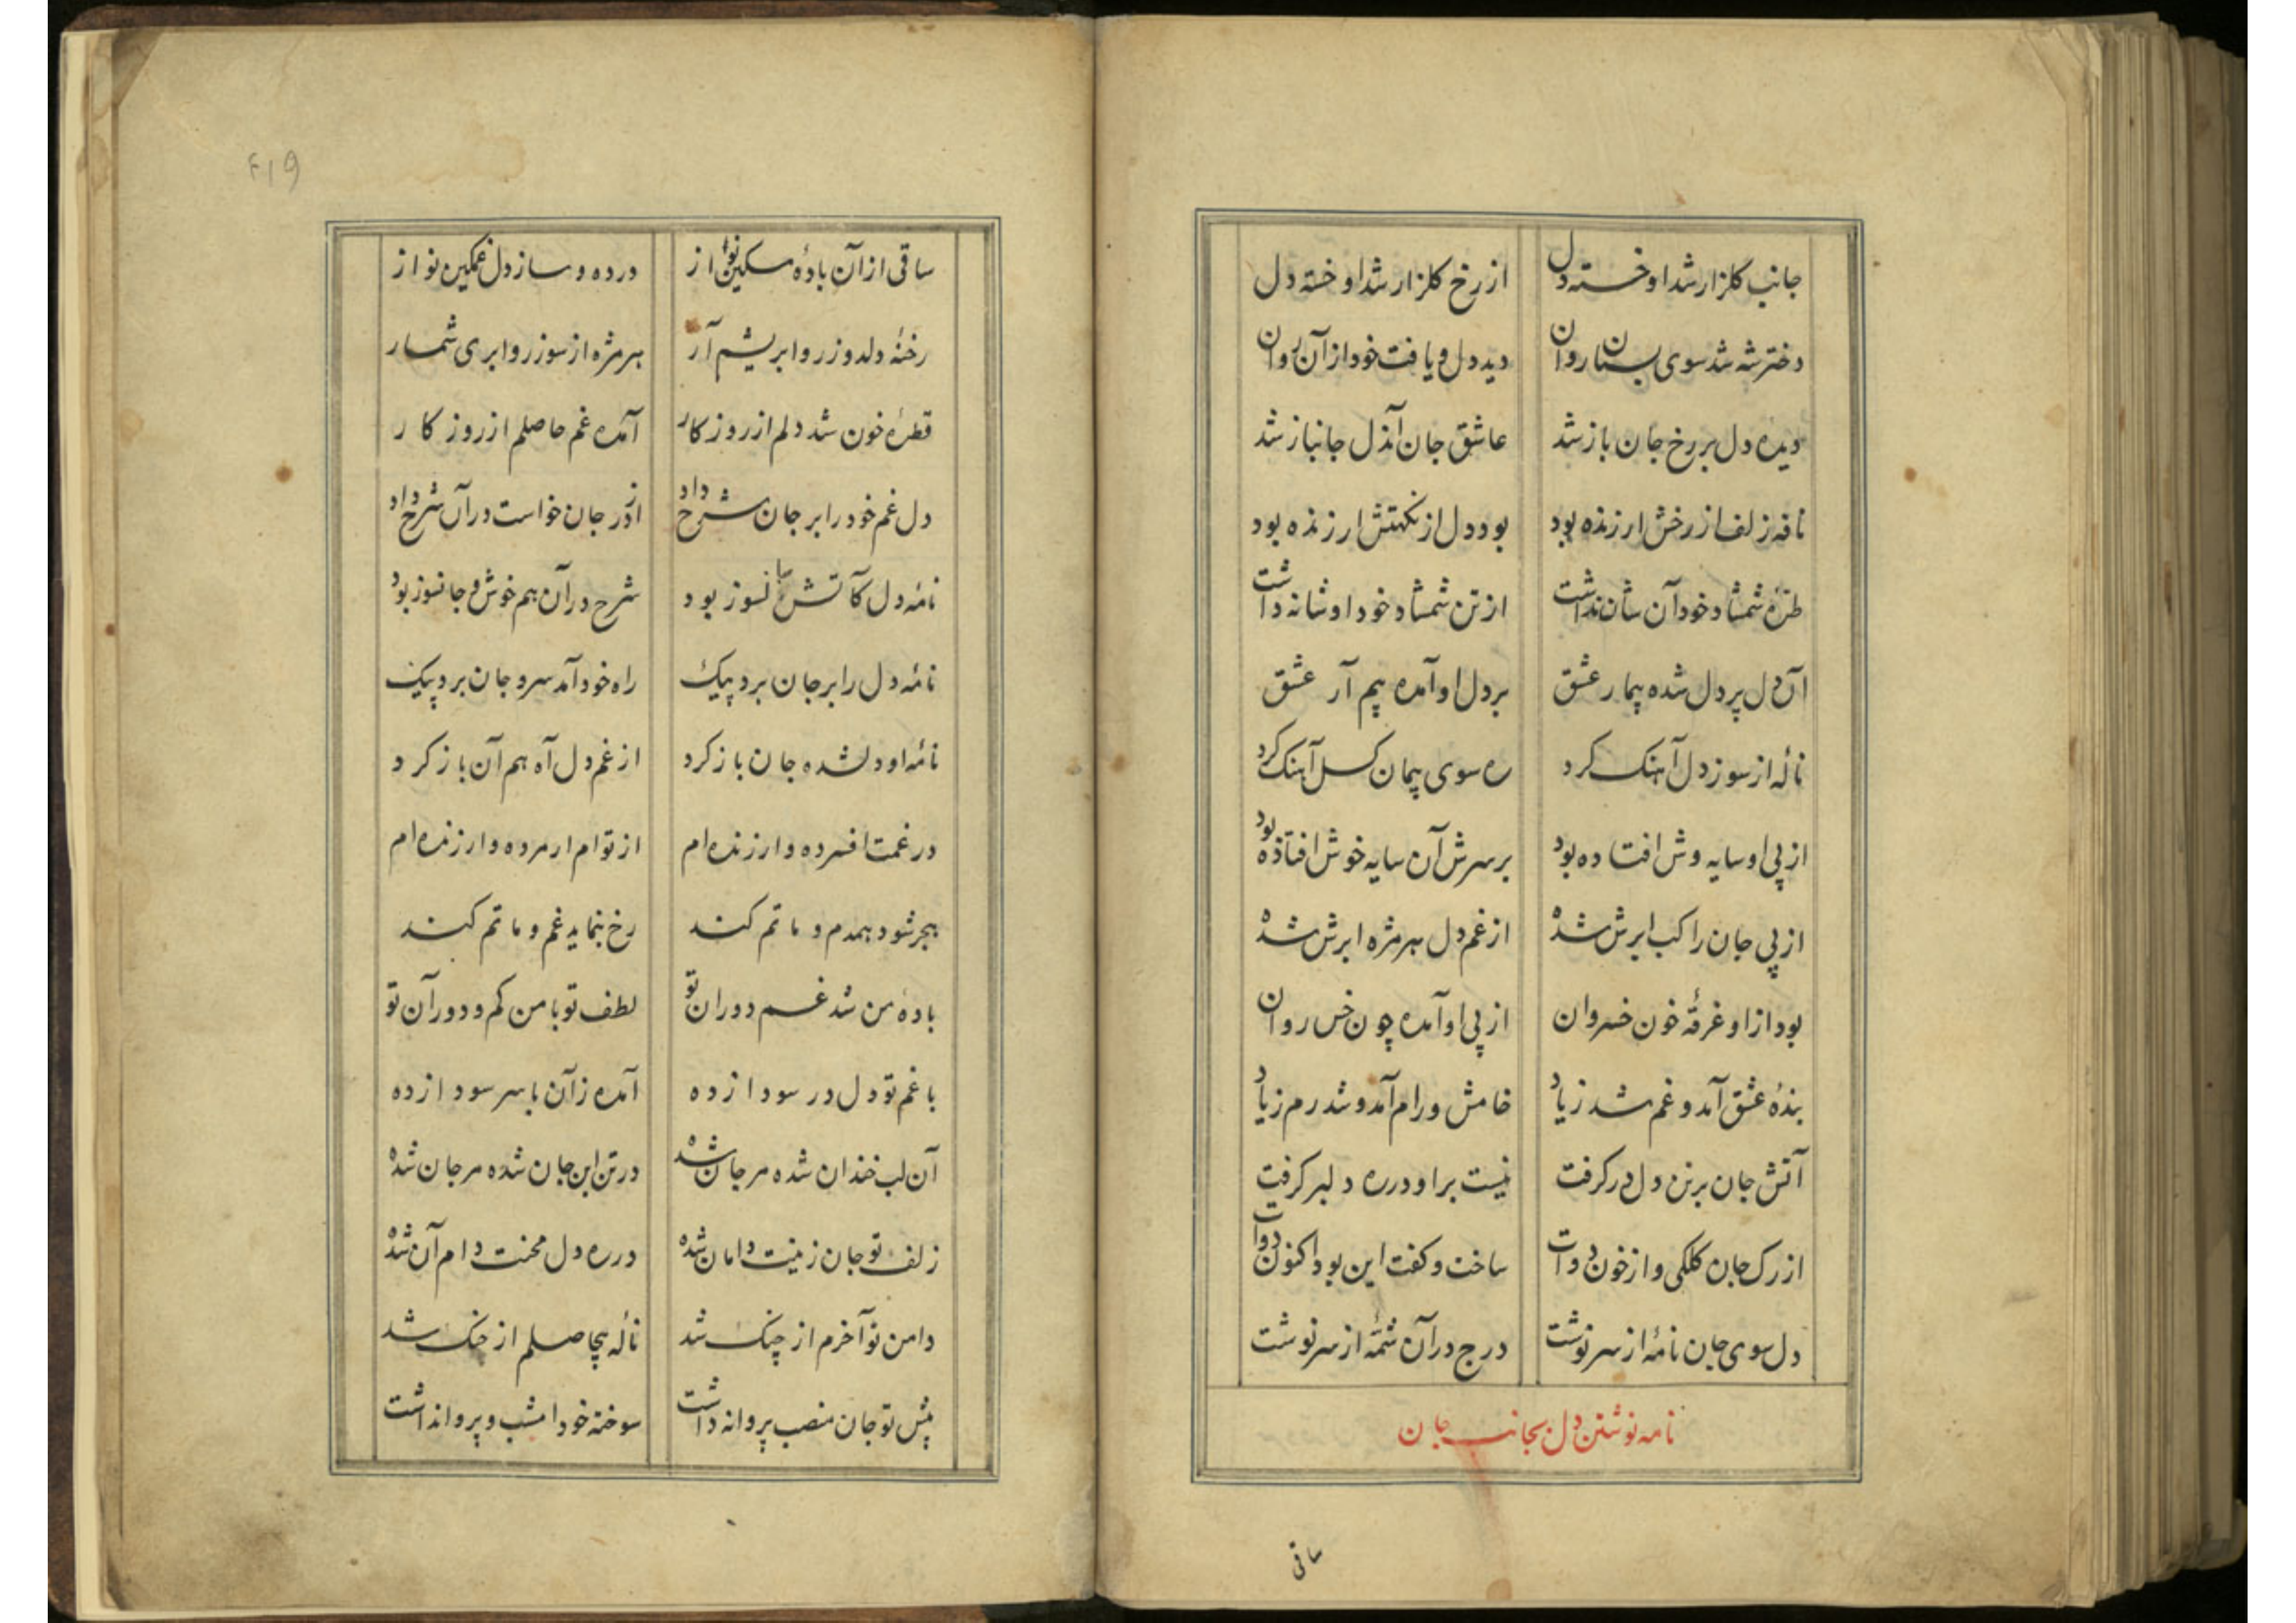 جانب کلزار شد او خسته دل از رخ کلزار شد او خسته دل
دختر شه شد سوی بستان روان دید دل و یافت خود از آن روان
دیده دل بر رخ جان باز شد عاشق جان آندل جانباز شد
نافه زلف از رخش ارزنده بود بود دل از نکهتش ارزنده بود
طره شمشاد خود آن شان نداشت از تن شمشاد خود او شانه داشت
آن دل پر دل شده بیمار عشق بر دل او آمده بیم آر عشق
ناله از سوز دل آهنک کرد ره سوی پیمان کسل آهنک کرد
از پی او سایه وش افتاده بود بر سرش آن سایه خوش افتاده بود
از پی جان راکب ابرش شده از غم دل هر مژه ابرش شده
بود از او غرقهٔ خون خسروان از پی او آمده چون خس روان
بندهٔ عشق آمد و غم شد زیاد خامش و رام آمد و شد رم زیاد
آتش جان بر تن دل در کرفت نیست براو در ره دلبر کرفت
از رک جان کلکی و از خون دوات ساخت و کفت این بود اکنون دوات
دل سوی جان نامهٔ از سر نوشت درج در آن شمهٔ از سرنوشت
نامه نوشتن دل بجانب جان
ساقی
۴۱۹
ساقی از آن بادهٔ مسکین نواز در ده و ساز دل غمکین نواز
رخنهٔ دلدوز روا بریشم آر هر مژه از سوز روا بری شمار
قطرهٔ خون شد دلم از روزکار آمده غم حاصلم از روز کار
دل غم خود را بر جان شرح داد از در جان خواست در آن شرح داد
نامه دل کآتش جانسوز بود شرح در آن هم خوش و جانسوز بود
نامهٔ دل را بر جان برد پیک راه خود آمد سر و جان برد پیک
نامهٔ او دلشده جان باز کرد از غم دل آه هم آن باز کرد
در غمت افسرده و ارزنده ام از توام ار مرده و ار زنده ام
هجر شود همدم و ماتم کند رخ بنماید غم و ماتم کند
بادهٔ من شد غم دوران تو لطف تو با من کم و دور آن تو
با غم تو دل در سودا زده آمده زآن با سر سودا زده
آن لب خندان شده مرجان شده در تن این جان شده مرجان شده
زلف تو جان زینت دامان شده در ره دل محنت دام آن شده
دامن تو آخرم از چنک شد ناله بیحاصلم از چنک شد
پیش تو جان منصب پروانه داشت سوخته خود امشب و پروا نداشت